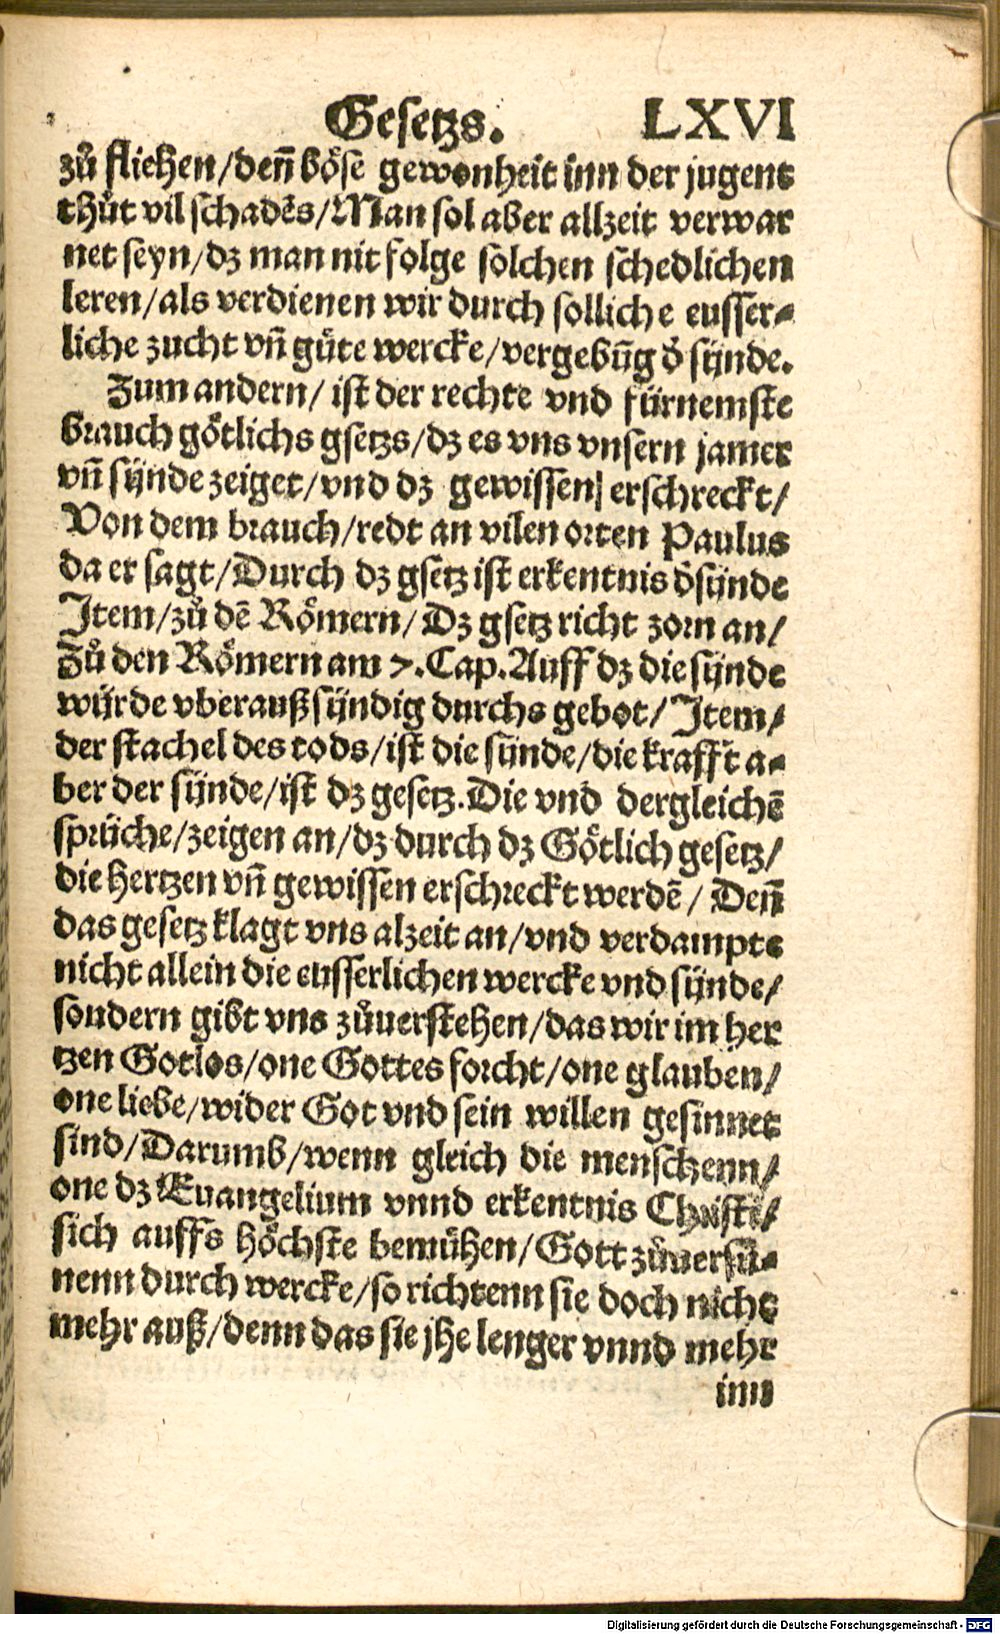 Gesetzs. LXVI
zů fliehen/denn̄ böse gewonheit inn der jugent
thůt vil schadēs/Man sol aber allzeit verwar
net seyn/dz man nit folge solchen schedlichen
leren/als verdienen wir durch solliche eusser⸗
liche zucht vn̄ gůte wercke/vergebūg d̕ sünde.
Zum andern/ ist der rechte vnd fürnemste
brauch götlichs gsetzs/dz es vns vnsern jamer
vn̄ sünde zeiget/vnd dz gewissen] erschreckt/
Von dem brauch/redt an vilen orten Paulus
da er sagt/Durch dz gsetz ist erkentnis d̕ sünde
Item/zů dē Römern/ Dz gsetz richt zorn an/
Zů den Römern am 7.Cap.Auff dz die sünde
würde vberauß sündig durchs gebot/ Item/
der stachel des tods/ist die sünde/die krafft a⸗
ber der sünde/ist dz gesetz.Die vnd dergleichē
sprüche/zeigen an/dz durch dz Götlich gesetz/
die hertzen vn̄ gewissen erschreckt werdē/ Denn̄
das gesetz klagt vns alzeit an/vnd verdampte
nicht allein die eusserlichen wercke vnd sünde/
sondern gibt vns zůuerstehen/das wir im her
tzen Gotlos/one Gottes forcht/one glauben/
one liebe/wider Got vnd sein willen gesinnet
sind/Darumb/wenn gleich die menschenn/
one dz Euangelium vnnd erkentnis Christi/
sich auffs höchste bemühen/Gott zůuersü⸗
nenn durch wercke/so richtenn sie doch nicht
mehr auß/denn das sie jhe lenger vnnd mehr
inn
Digitalisierung gefördert durch die Deutsche Forschungsgemeinschaft - DFG